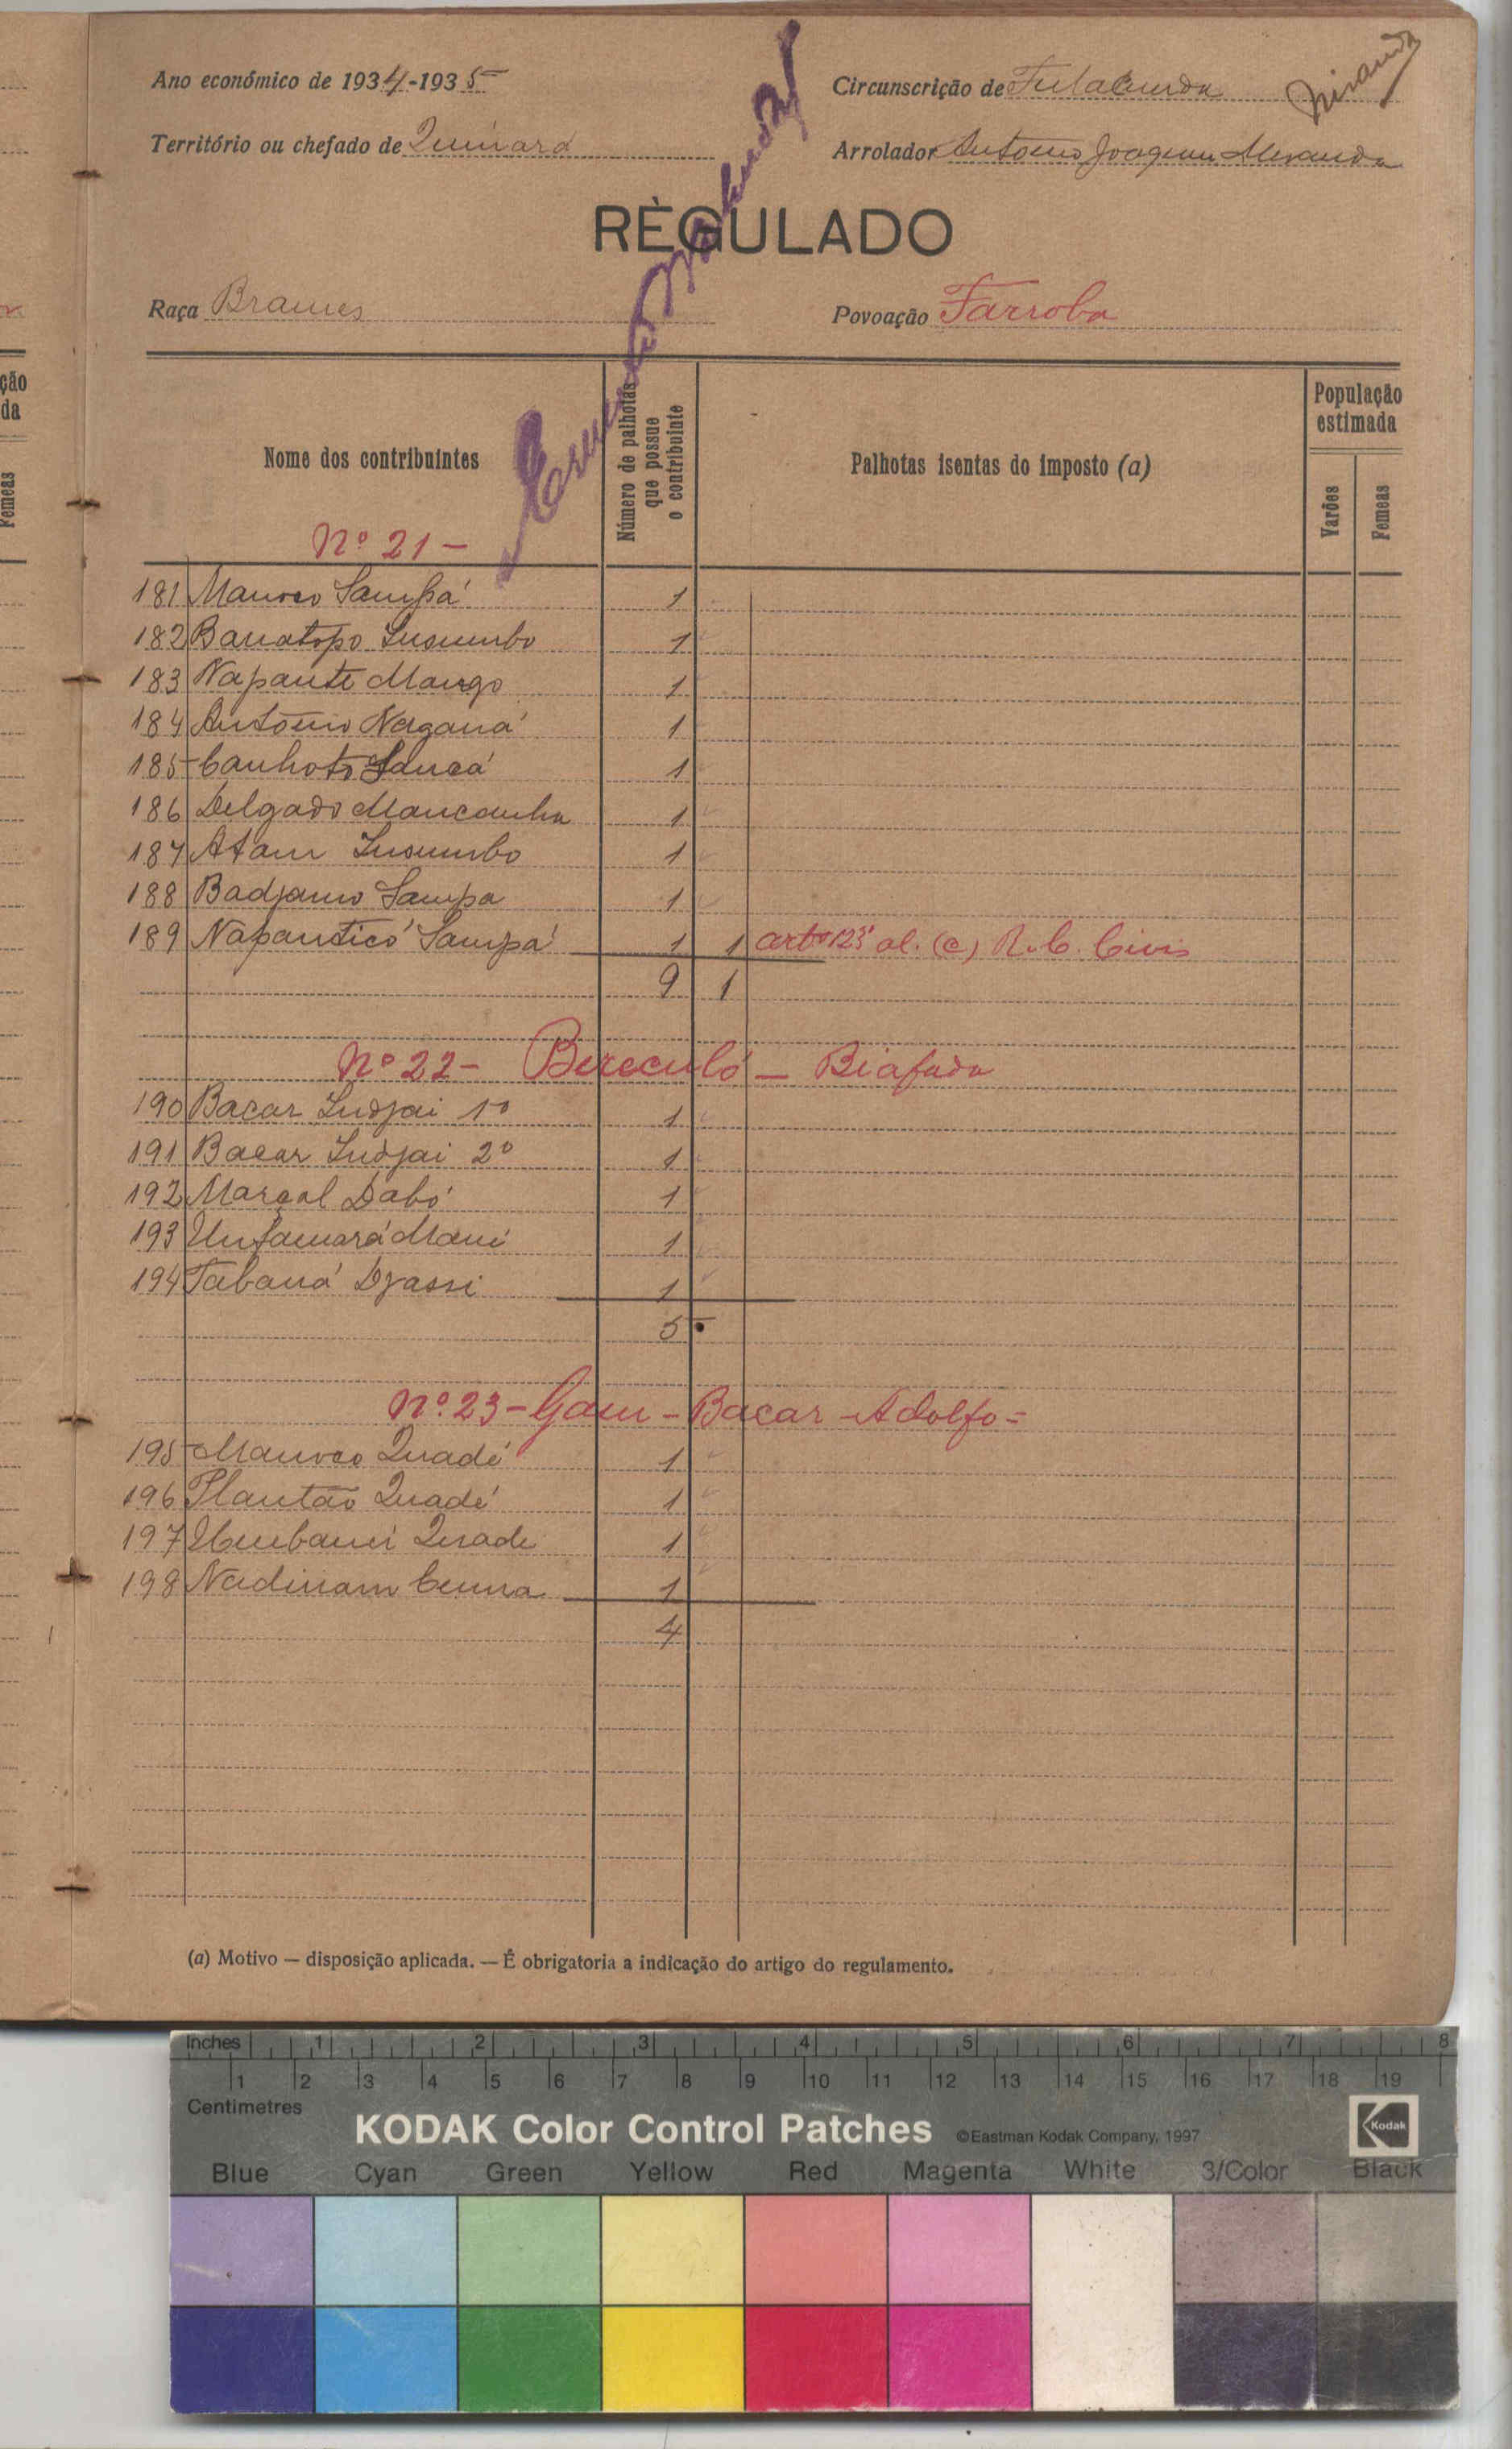 Ano económico de 1934-1935
Circunscrição de Fulacunda
Território ou chefado de Quinará
Arrolador António Joaquim Miranda
Miranda
RÈGULADO
Raça Brames
Povoação Farroba
ção
da
Femeas
Nome dos contribuintes
Número de palhotas que possue o contribuinte
Palhotas isentas do imposto (a)
População estimada
Varões
Femeas
Nº 21 -
181 Sampá 1
182 1
183 Napante Mango 1
184 António Naganá 1
185 Canhoto Sancá 1
186 Delgado Mancanha 1
187 Atam 1
188 Badjamo Sampa 1
189 Napanticó Sampá 1 1 artº 123 al. (c) R. C. Civis
9 1
Nº 22 - Bereculó - Biafada
190 Bacar Indjai 1º 1
191 Bacar Indjai 2º 1
192 Marçal Dabó 1
193 Unfamará Mané 1
194 Tabaná Djassi 1
5
Nº 23 - Gam - Bacar - Adolfo =
195 Quadé 1
196 Plantão Quadé 1
197 Quade 1
198 1
4
(a) Motivo — disposição aplicada. — É obrigatoria a indicação do artigo do regulamento.
Inches 1 2 3 4 5 6 7 8
1 2 3 4 5 6 7 8 9 10 11 12 13 14 15 16 17 18 19
Centimetres
KODAK Color Control Patches ©Eastman Kodak Company, 1997 Kodak
Blue Cyan Green Yellow Red Magenta White 3/Color Black